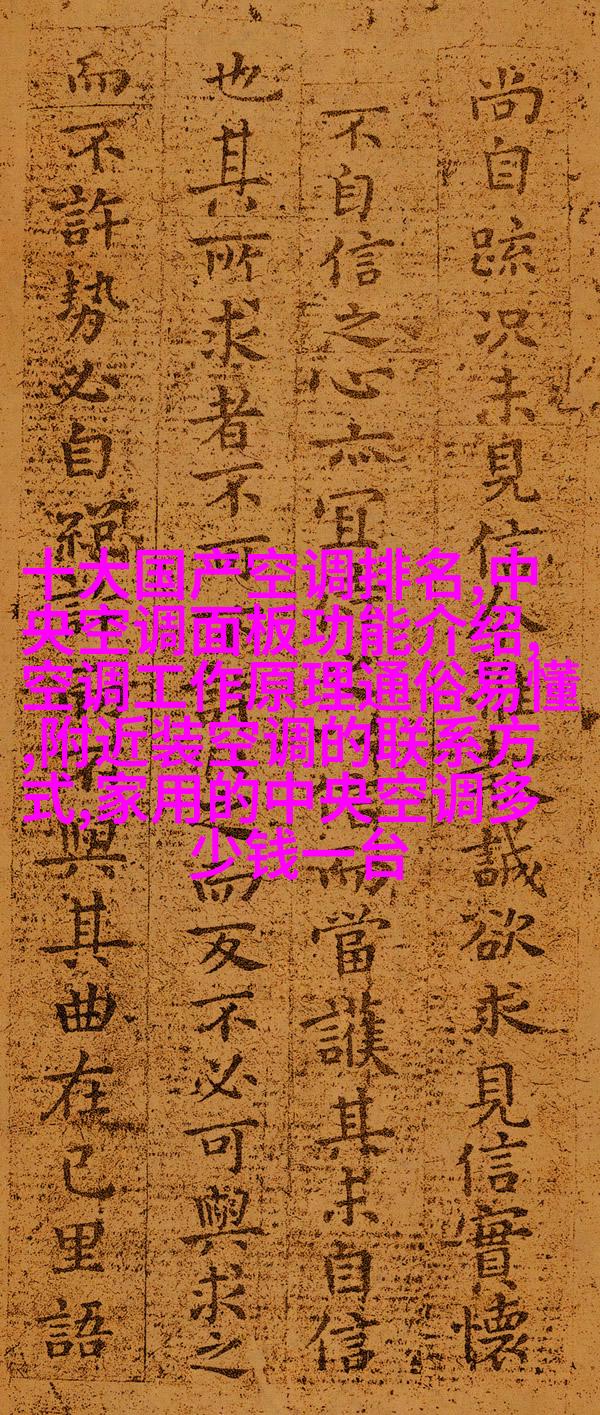 尚自疏況未見信誠欲求見信實懷
不自信之心亦宜而當護其未自信
也其所求者不可而反不必可與求之
而不許勢必自與其曲在己里語
十大国产空调排名,中
央空调面板功能介绍,
空调工作原理通俗易懂
,附近装空调的联系方
式,家用的中央空调多
少钱一台